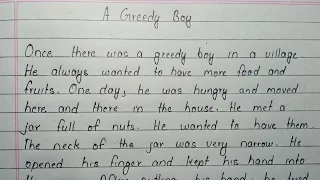 A Greedy Boy
Once there was a greedy boy in a village.
He always wanted to have more food and
fruits. One day, he was hungry and moved
here and there in the house. He met a
jar full of nuts. He wanted to have them.
The neck of the jar was very narrow. He
opened his finger and kept his hand into
After putting his hand, he tried